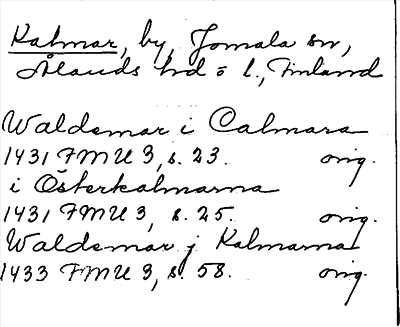 Kalmar, by, Jomala sn,
Ålands hd o l., Finland
Waldemar i Calmara
1431 FMU 3, s. 23. orig.
i Österkalmarna
1431 FMU 3, s. 25. orig.
Waldemar j Kalmarna
1433 FMU 3, s. 58. orig.